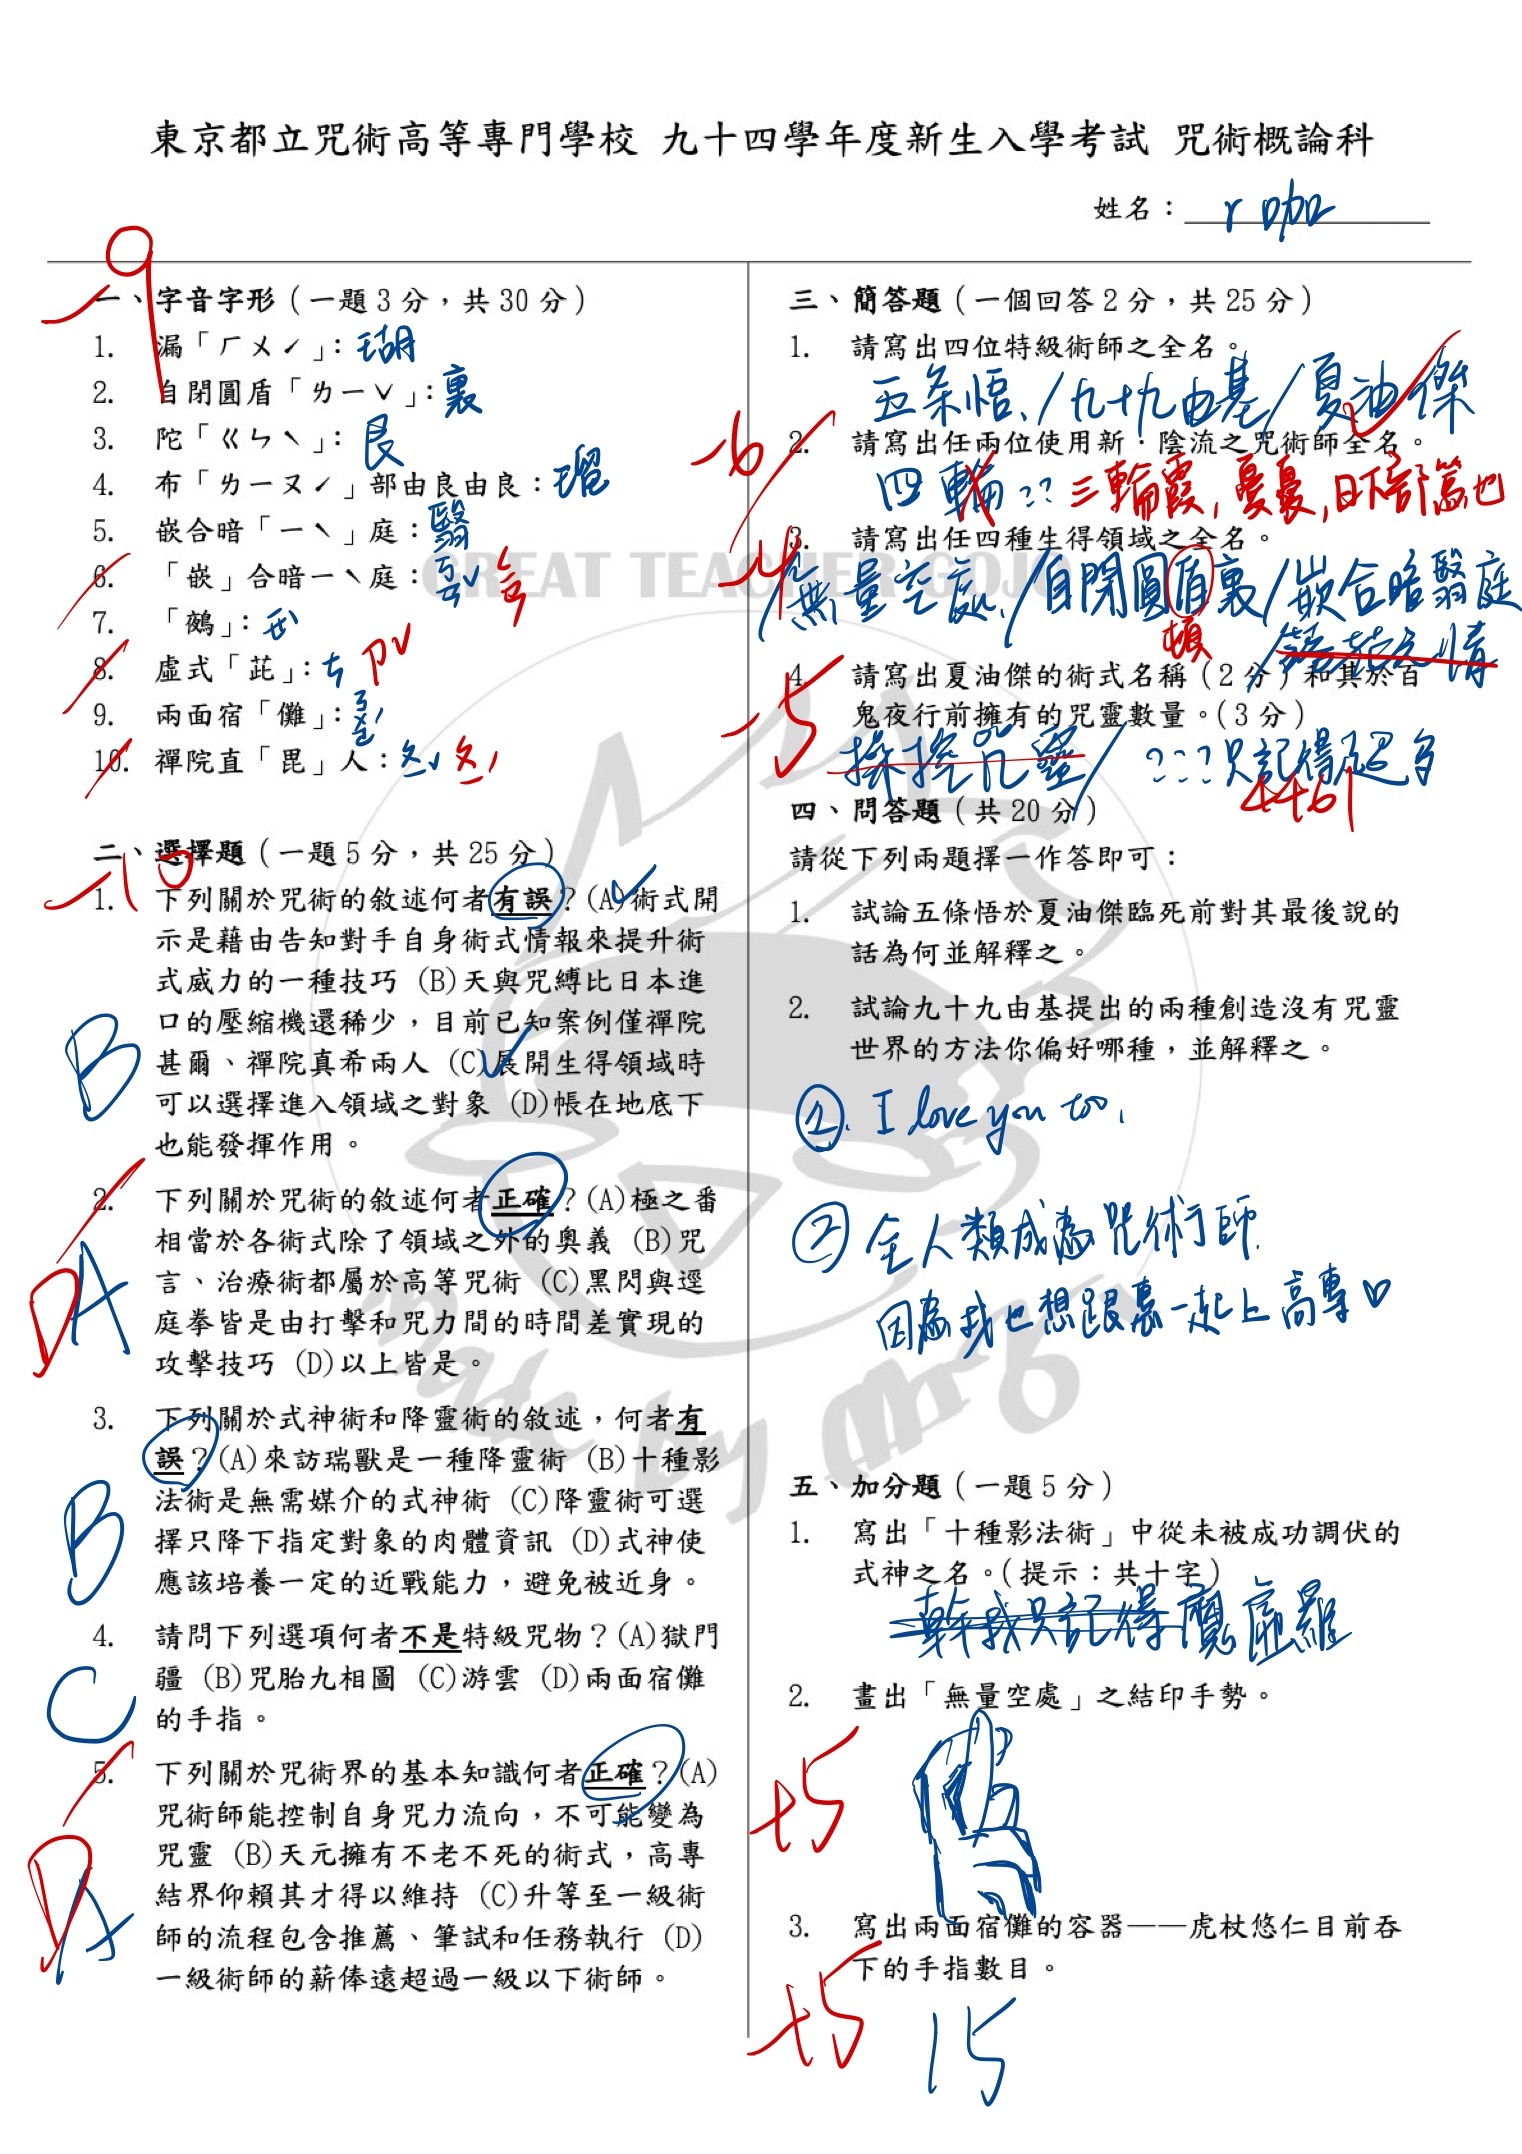 東京都立咒術高等專門學校 九十四學年度新生入學考試 咒術概論科
姓名：r 咖
-9
一、字音字形（一題3分，共30分）
1. 漏「ㄏㄨˊ」：瑚
2. 自閉圓盾「ㄌㄧˇ」：裏
3. 陀「ㄍㄣˋ」：艮
4. 布「ㄌㄧㄡˊ」部由良由良：瑠
5. 嵌合暗「ㄧˋ」庭：翳
6. 「嵌」合暗ㄧˋ庭：
7. 「鵺」：
8. 虛式「茈」：ㄘ ㄗˇ
9. 兩面宿「儺」：
10. 禪院直「毘」人：
二、選擇題（一題5分，共25分）
-10
1. 下列關於咒術的敘述何者有誤？(A)術式開
示是藉由告知對手自身術式情報來提升術
式威力的一種技巧 (B)天與咒縛比日本進
口的壓縮機還稀少，目前已知案例僅禪院
甚爾、禪院真希兩人 (C)展開生得領域時
可以選擇進入領域之對象 (D)帳在地底下
也能發揮作用。
B
2. 下列關於咒術的敘述何者正確？(A)極之番
相當於各術式除了領域之外的奧義 (B)咒
言、治療術都屬於高等咒術 (C)黑閃與逕
庭拳皆是由打擊和咒力間的時間差實現的
攻擊技巧 (D)以上皆是。
D A
3. 下列關於式神術和降靈術的敘述，何者有
誤？(A)來訪瑞獸是一種降靈術 (B)十種影
法術是無需媒介的式神術 (C)降靈術可選
擇只降下指定對象的肉體資訊 (D)式神使
應該培養一定的近戰能力，避免被近身。
B
4. 請問下列選項何者不是特級咒物？(A)獄門
疆 (B)咒胎九相圖 (C)游雲 (D)兩面宿儺
的手指。
C
5. 下列關於咒術界的基本知識何者正確？(A)
咒術師能控制自身咒力流向，不可能變為
咒靈 (B)天元擁有不老不死的術式，高專
結界仰賴其才得以維持 (C)升等至一級術
師的流程包含推薦、筆試和任務執行 (D)
一級術師的薪俸遠超過一級以下術師。
D A
三、簡答題（一個回答2分，共25分）
1. 請寫出四位特級術師之全名。
五条悟、/九十九由基/夏油傑
-6
2. 請寫出任兩位使用新．陰流之咒術師全名。
四輪?? 三輪霞，憂憂，日下部篤也
3. 請寫出任四種生得領域之全名。
-4
/無量空處、/自閉圓盾裏/嵌合暗翳庭
頓
4. 請寫出夏油傑的術式名稱（2分）和其於百
鬼夜行前擁有的咒靈數量。（3分）
-5
操控咒靈/ ???只記得超多
4461
四、問答題（共20分）
請從下列兩題擇一作答即可：
1. 試論五條悟於夏油傑臨死前對其最後說的
話為何並解釋之。
2. 試論九十九由基提出的兩種創造沒有咒靈
世界的方法你偏好哪種，並解釋之。
①. I love you too.
② 全人類成為咒術師.
因為我也想跟惠一起上高專♡
五、加分題（一題5分）
1. 寫出「十種影法術」中從未被成功調伏的
式神之名。（提示：共十字）
幹我只記得魔虛羅
2. 畫出「無量空處」之結印手勢。
+5
3. 寫出兩面宿儺的容器——虎杖悠仁目前吞
下的手指數目。
+5
15
GREAT TEACHER GOJO
Made by Mr.6